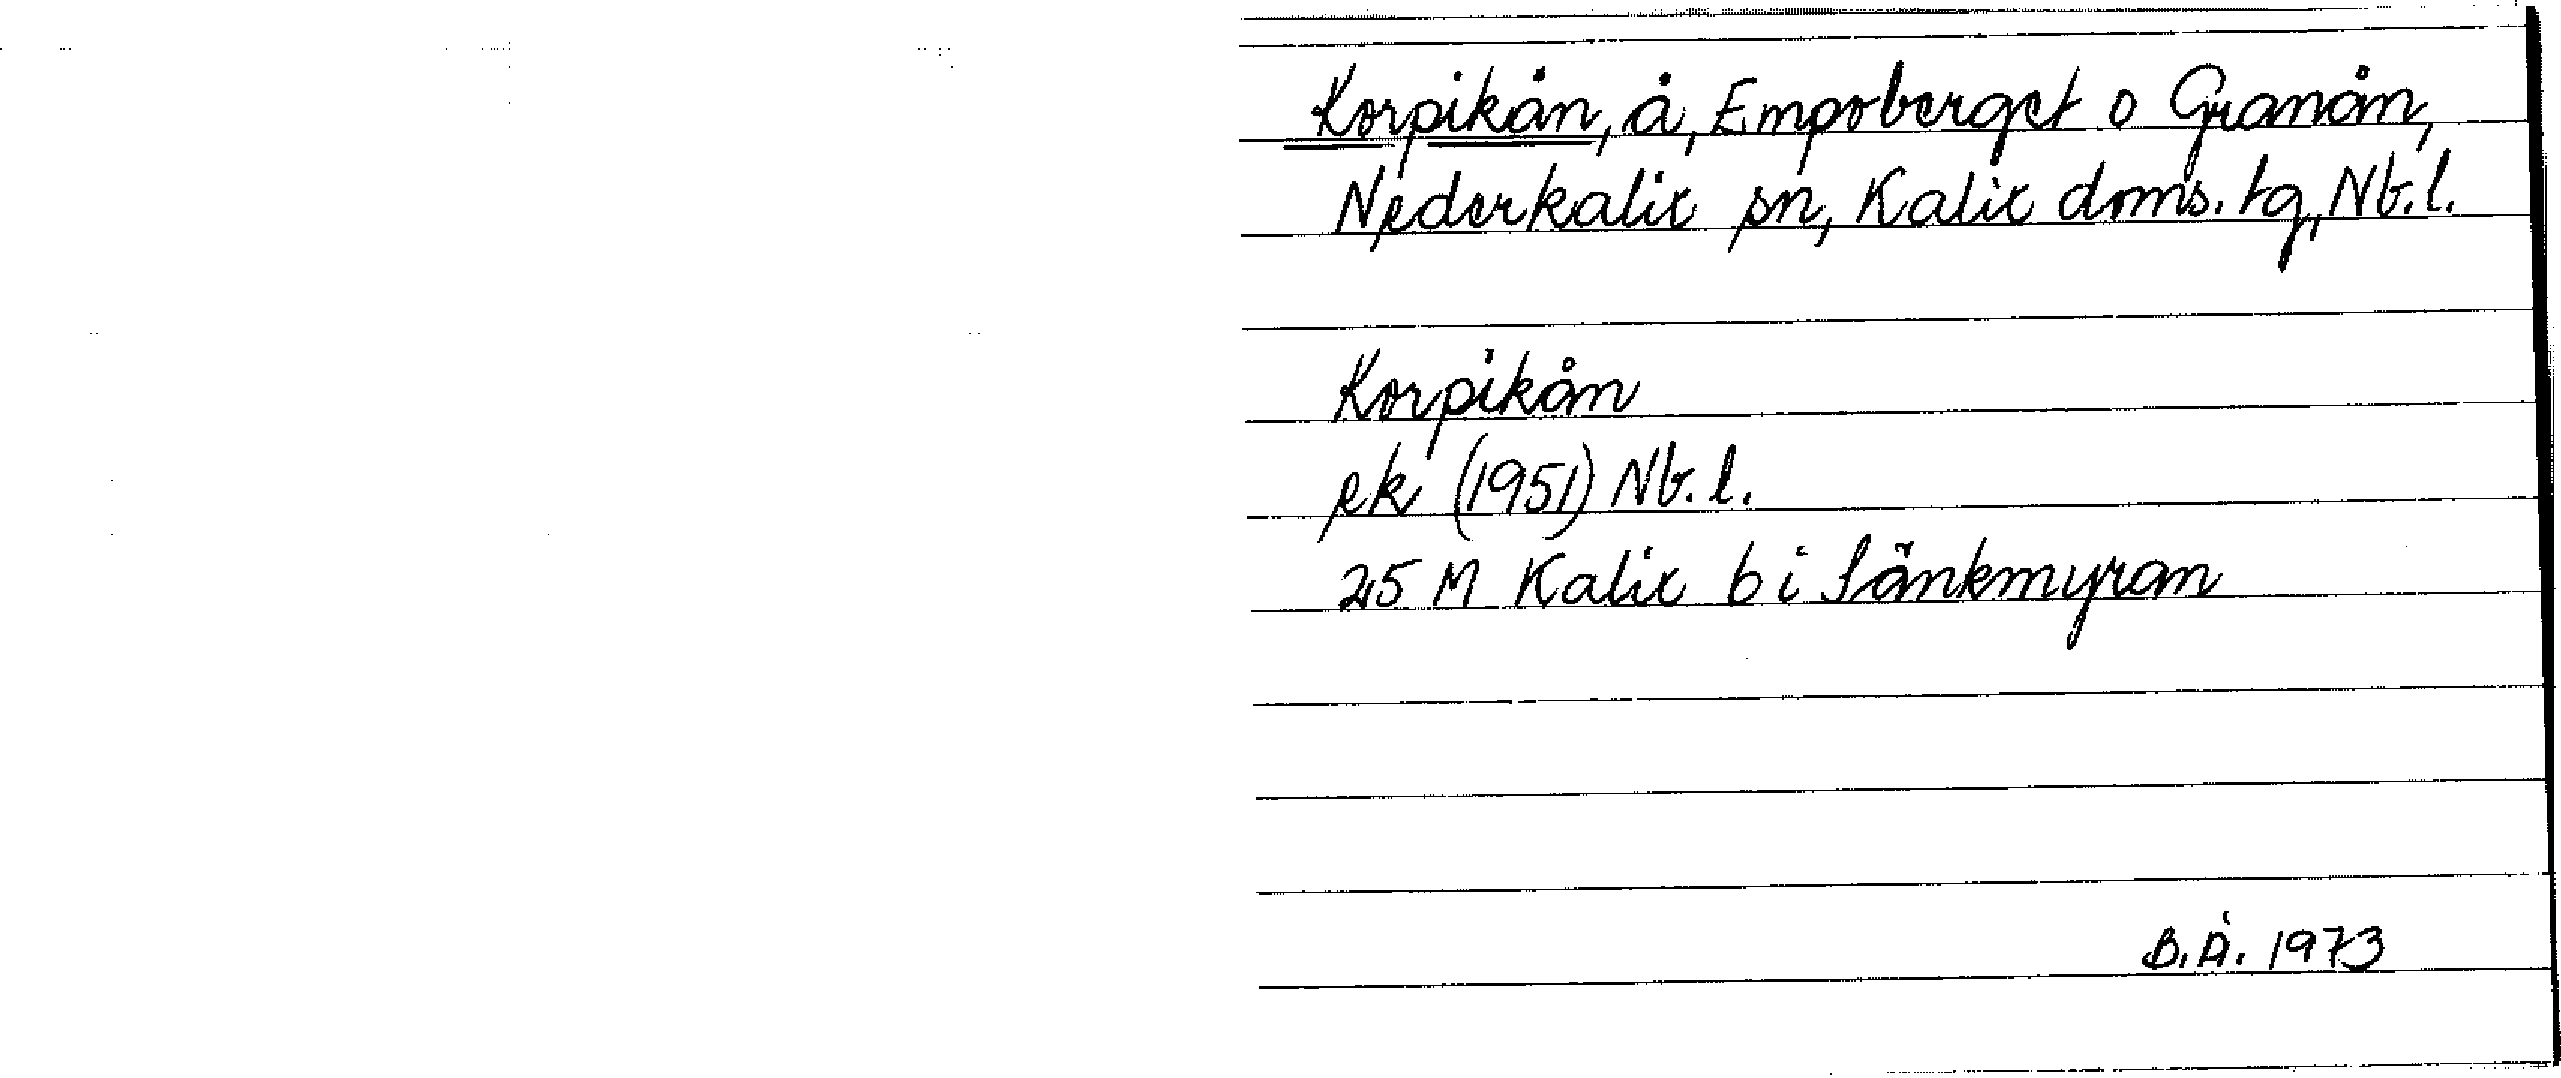 Korpikån, å, Empoberget o Granån,
Nederkalix sn, Kalix doms. tg, Nb.l.
Korpikån
ek (1951) Nb.l.
25 M Kalix b i Sänkmyran
B.Å. 1973